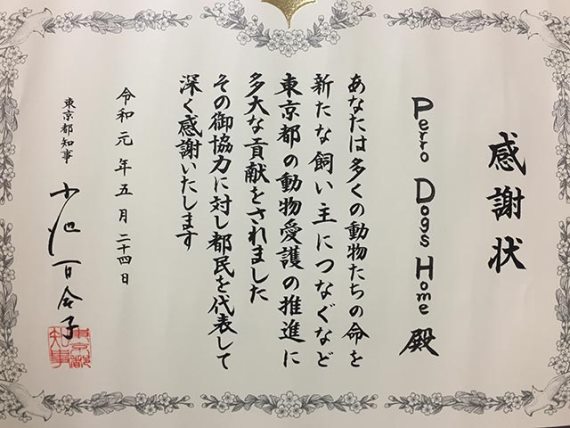 感謝状
Perro Dogs Home 殿
あなたは多くの動物たちの命を
新たな飼い主につなぐなど
東京都の動物愛護の推進に
多大な貢献をされました
その御協力に対し都民を代表して
深く感謝いたします
令和元年五月二十四日
東京都知事 小池百合子
東京都
知事